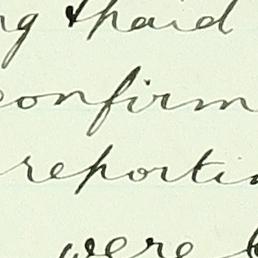 ng & paid
confirm
reportin
were b